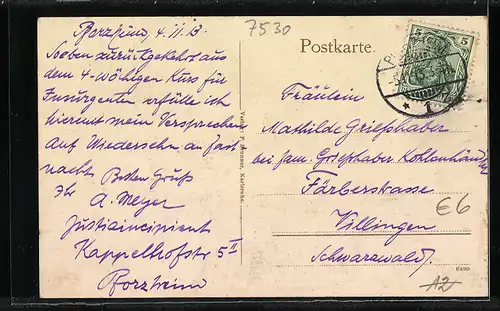 Pforzheim, 4.11.13.
7530
Soeben zurückgekehrt aus
dem 4-wöchigen Kurs für
Insurgenten erfülle ich
hiermit mein Versprechen
Auf Wiedersehn an Fast
nacht Besten Gruß
Ihr A. Meyer
Justizincipient
Kappelhofstr 5 II
Pforzheim
Postkarte.
5
Fräulein
Mathilde Grieshaber
bei fam. Grieshaber Kohlenhändler
Färberstrasse
Villingen
Schwarzwald.
€6
6499
A2